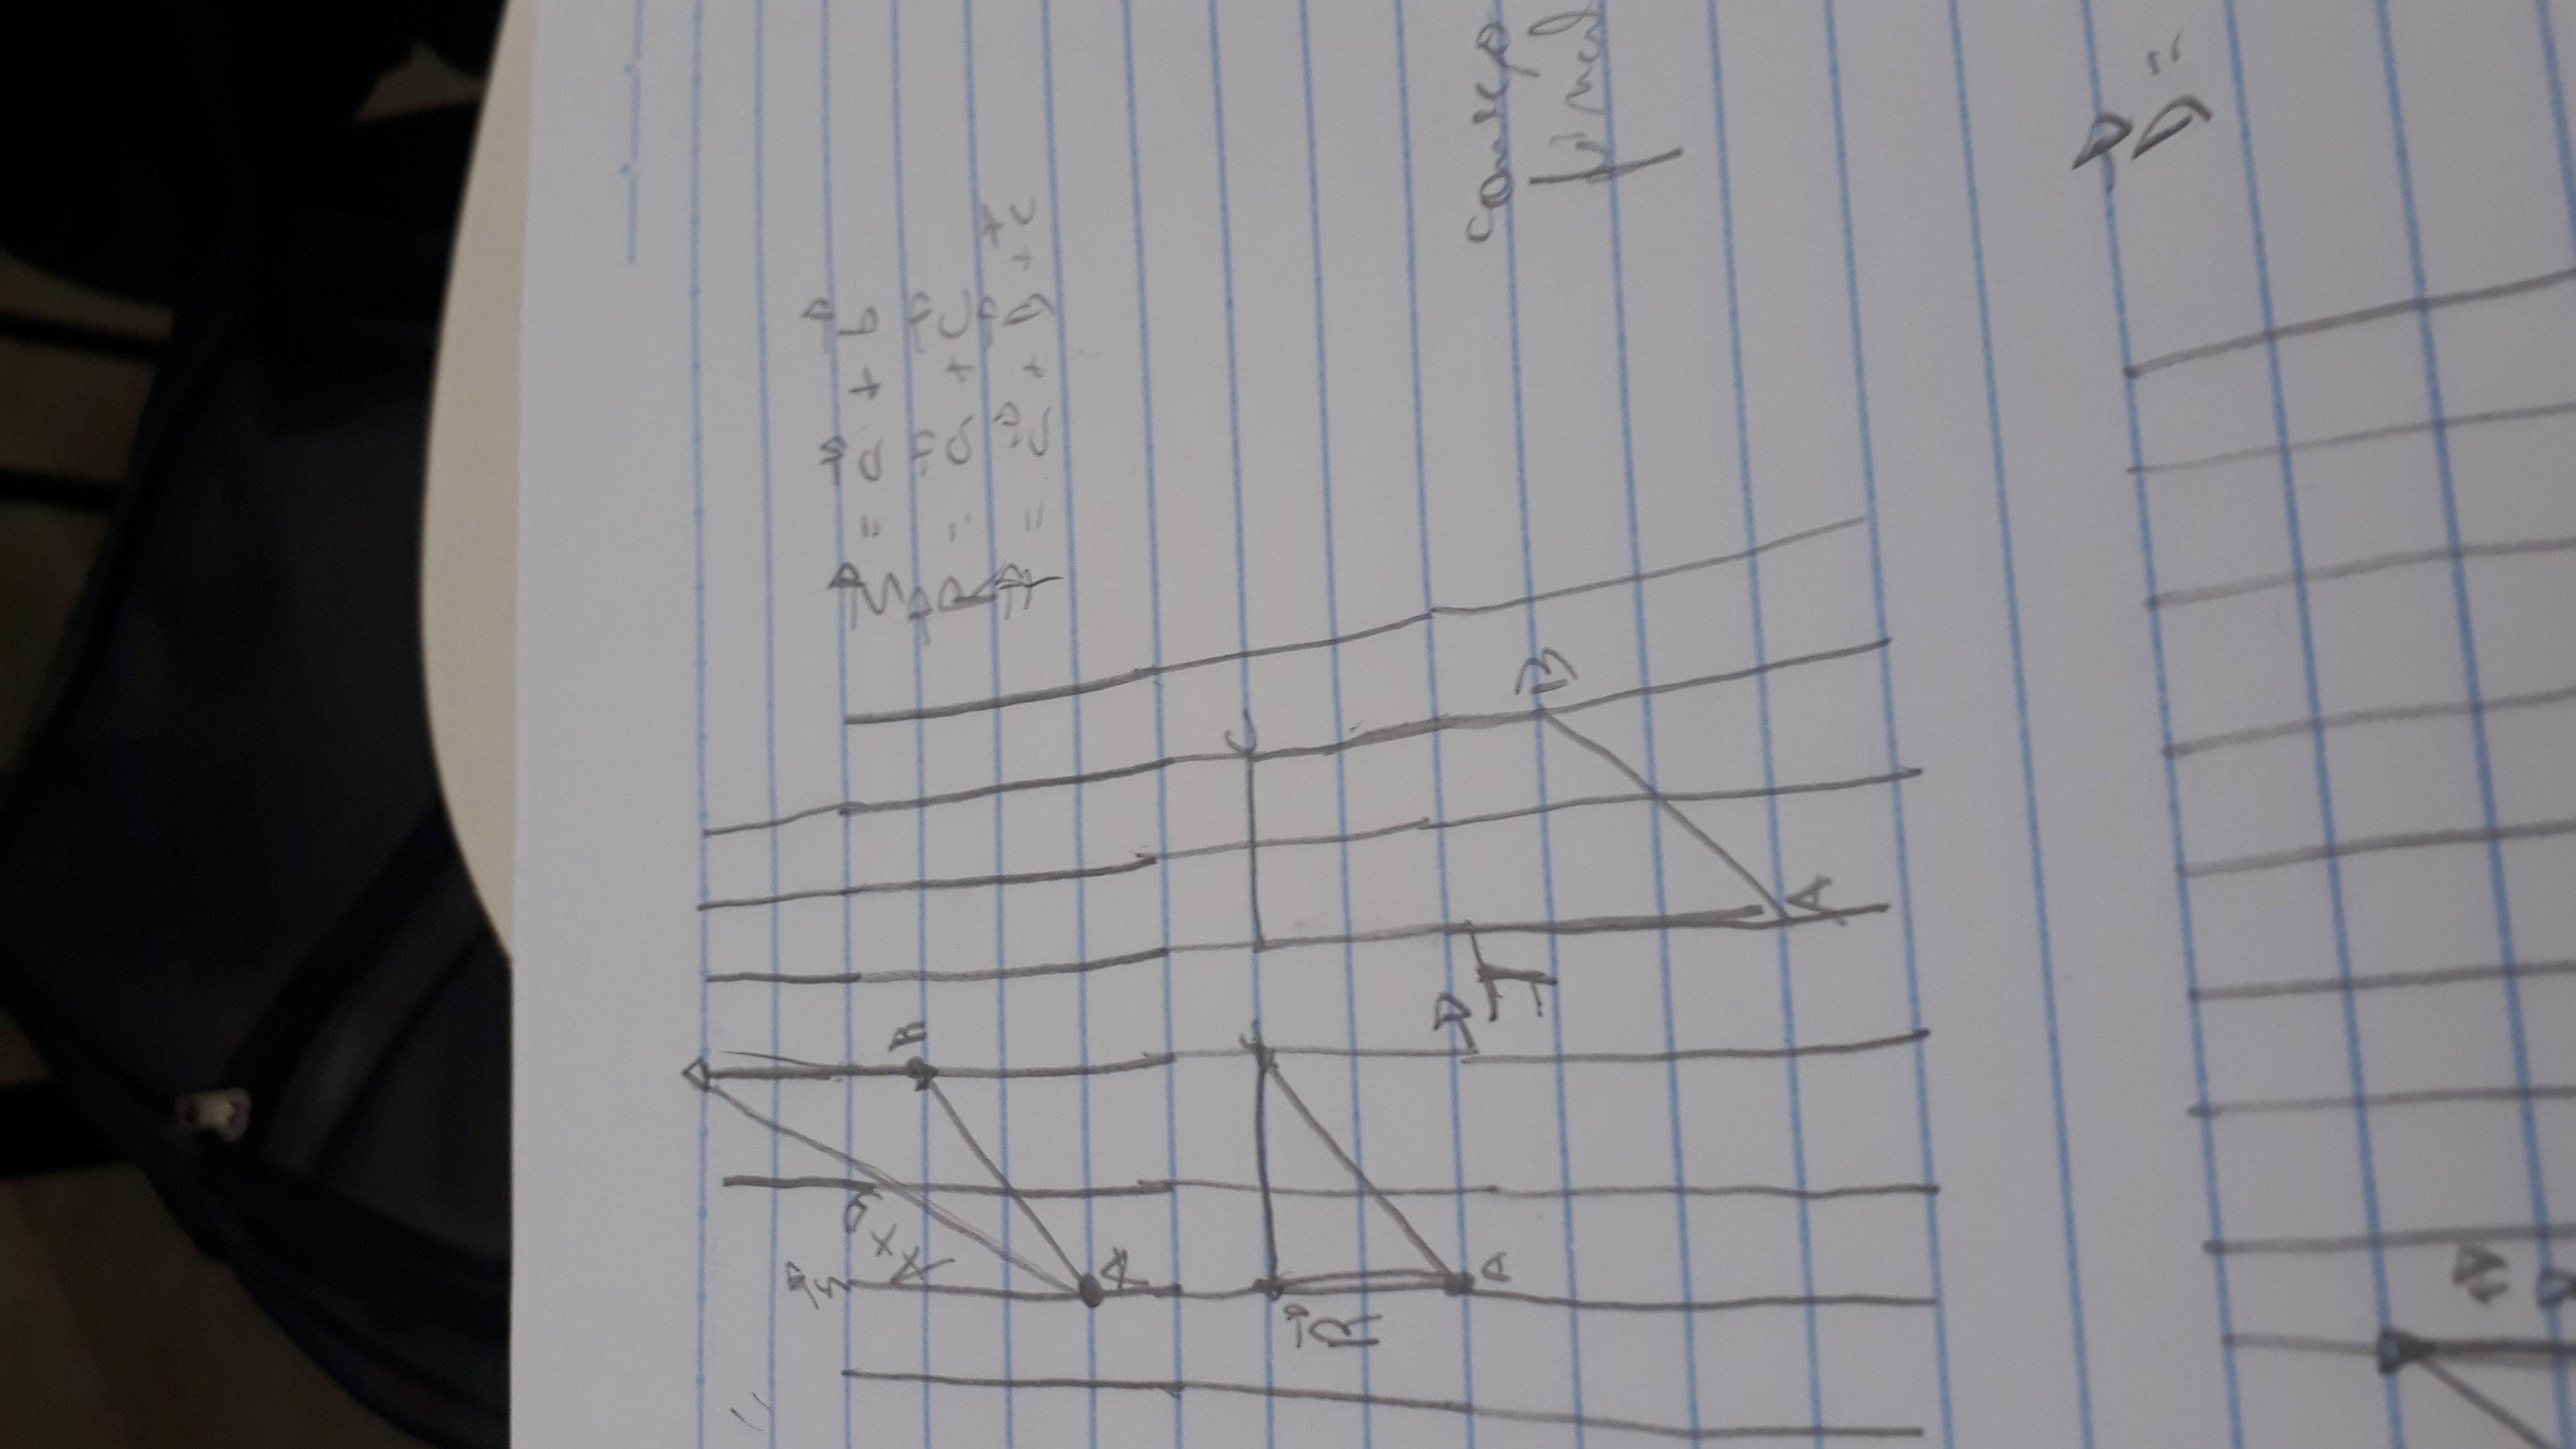 S
A + B
B
A
S = a + b
R = a + c
T = a + B + c
C
C
R
A
T
B
A
começo
final
D =